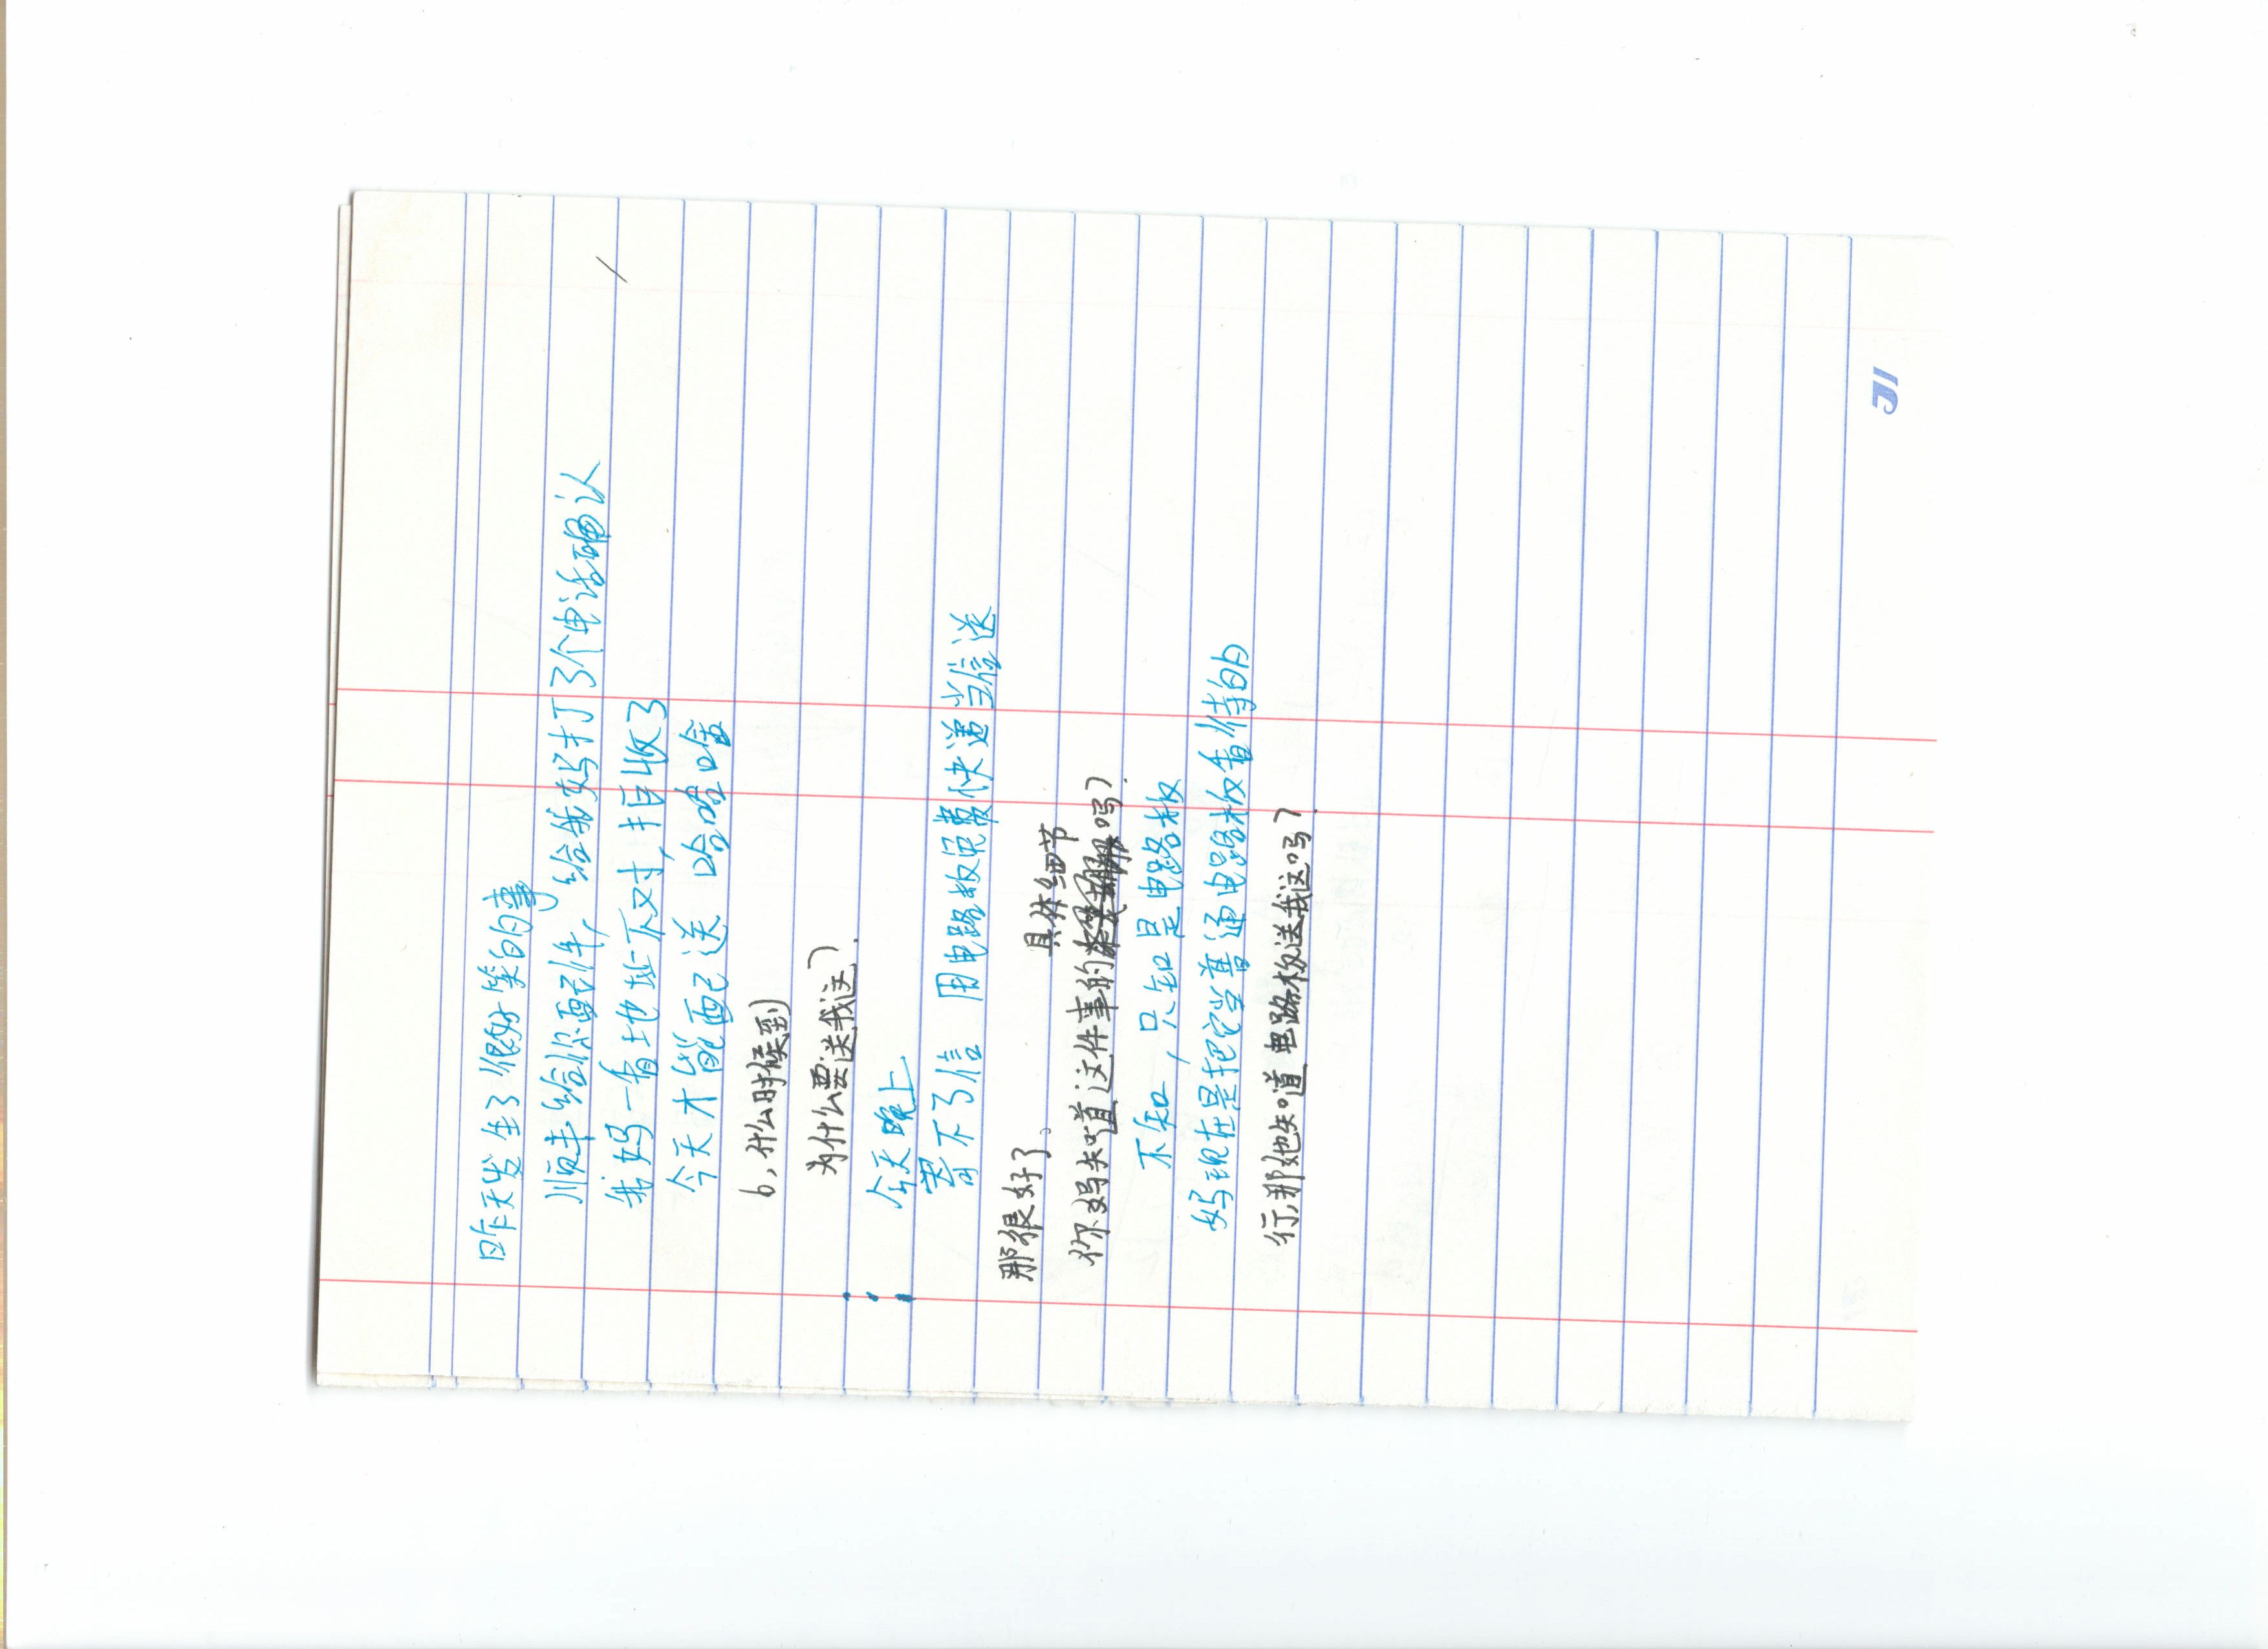 昨天发生了很好笑的事
顺丰给你配件,给我妈打了3个电话确认
我妈一看地址不对,拒收了
今天才能配送 哈哈哈
6,什么时候到?
为什么要送我这?
今天晚上
寄不了信 用电路板免费快递当信送
那很好了。
具体细节
你妈知道这件事的吗?
不知,只知是电路板
妈现在是把它当普通电路板看待的
行,那她知道电路板送我这吗?